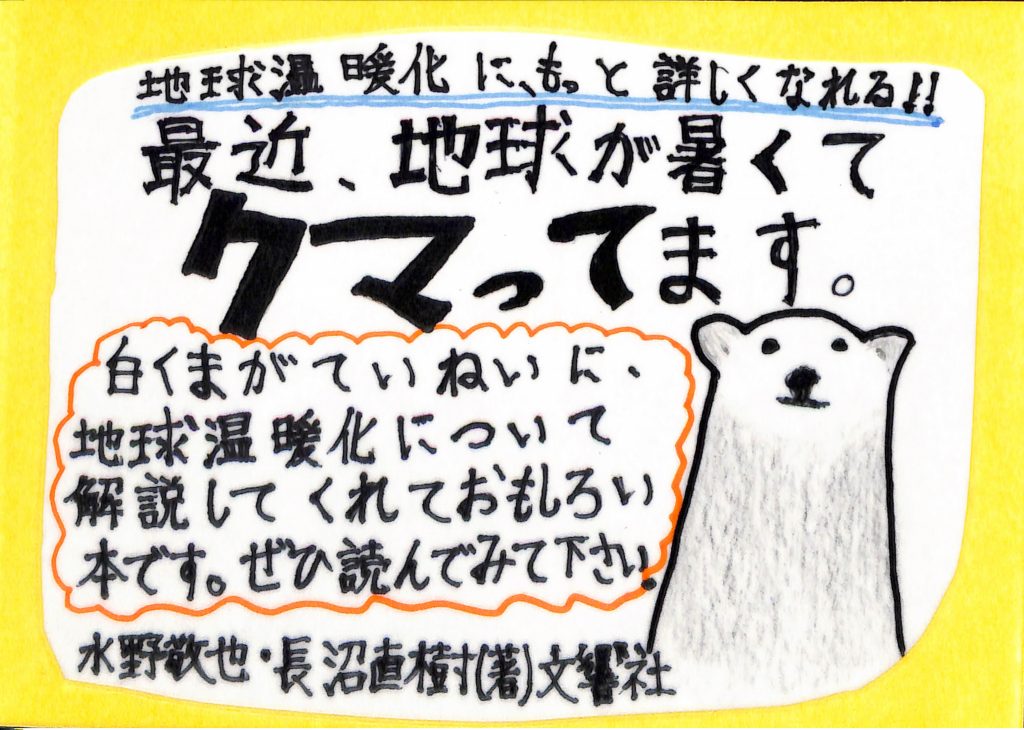 地球温暖化に、もっと詳しくなれる!!
最近、地球が暑くて
クマってます。
白くまがていねいに、
地球温暖化について
解説してくれておもしろい
本です。ぜひ読んでみて下さい。
水野敬也・長沼直樹(著)文響社